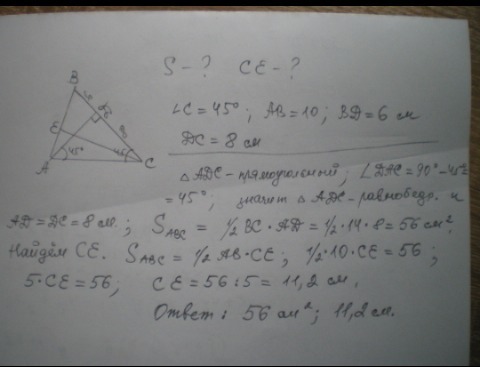 S-? CE-?
∠C=45°; AB=10; BD=6 см
DC=8 см
△ADC-прямоугольный; ∠DAC=90°-45°=
=45°; значит △ADC-равнобедр. и
AD=DC=8 см.; S_ABC = 1/2 BC·AD=1/2·14·8=56 см².
Найдём CE. S_ABC = 1/2 AB·CE; 1/2·10·CE=56;
5·CE=56; CE=56:5=11,2 см.
Ответ: 56 см²; 11,2 см.
B
6
D
8
E
45°
45°
A
C